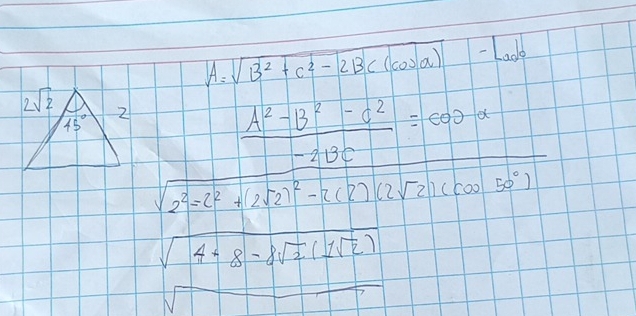 A = √B² + c² - 2BC (cos α) - Lado
2√2
45°
2
A² - B² - C² / -2BC = cos α
√2² = 2² + (2√2)² - 2(2)(2√2)(cos 50°)
√4 + 8 - 8√2 (1√2)
√